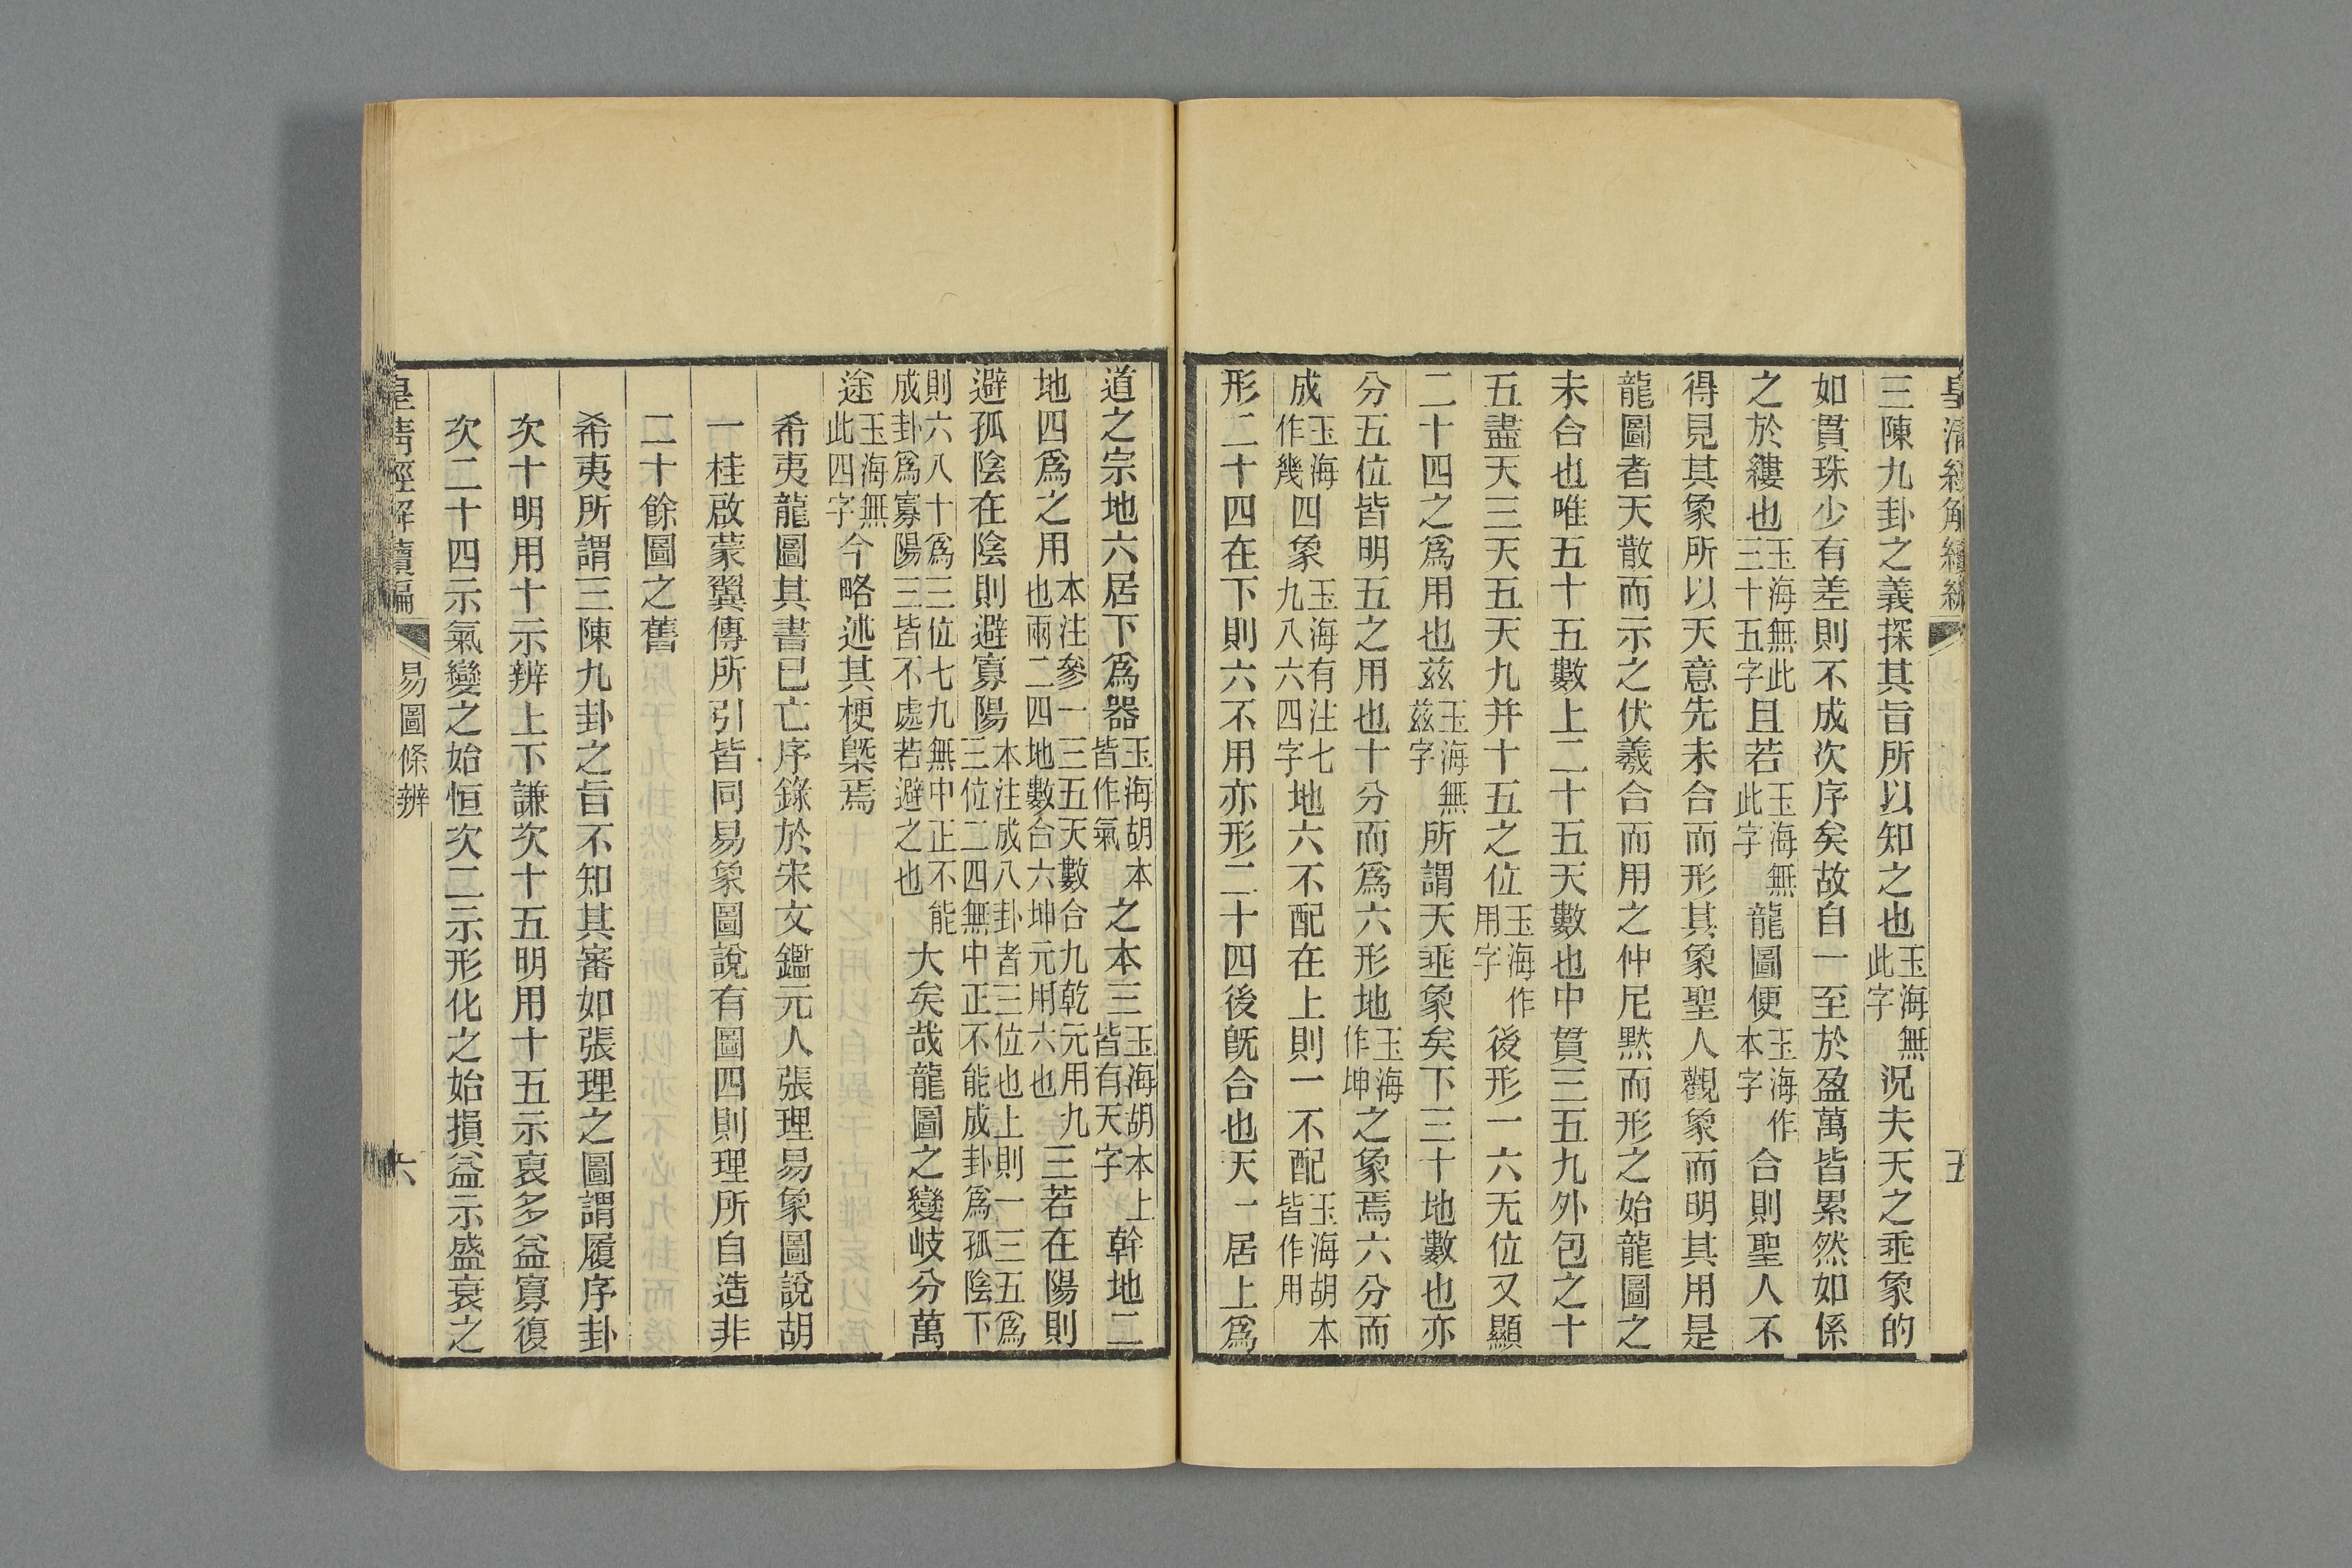 皇清經解續編
五
三陳九卦之義探其旨所以知之也玉海無此字況夫天之垂象的
如貫珠少有差則不成次序矣故自一至於盈萬皆累然如係
之於縷也玉海無此三十五字且若玉海無此字龍圖便玉海作本字合則聖人不
得見其象所以天意先未合而形其象聖人觀象而明其用是
龍圖者天散而示之伏羲合而用之仲尼默而形之始龍圖之
未合也唯五十五數上二十五天數也中貫三五九外包之十
五盡天三天五天九并十五之位玉海作用字後形一六无位又顯
二十四之爲用也茲玉海無茲字所謂天垂象矣下三十地數也亦
分五位皆明五之用也十分而爲六形地玉海作坤之象焉六分而
成玉海作幾四象玉海有注七九八六四字地六不配在上則一不配玉海胡本皆作用
形二十四在下則六不用亦形二十四後旣合也天一居上爲
道之宗地六居下爲器玉海胡本皆作氣之本三玉海胡本上皆有天字幹地二
地四爲之用本注參一三五天數合九乾元用九也兩二四地數合六坤元用六也三若在陽則
避孤陰在陰則避寡陽本注成八卦者三位也上則一三五爲三位二四無中正不能成卦爲孤陰下
則六八十爲三位七九無中正不能成卦爲寡陽三皆不處若避之也大矣哉龍圖之變岐分萬
途玉海無此四字今略述其梗槩焉
希夷龍圖其書已亡序錄於宋文鑑元人張理易象圖說胡
一桂啟蒙翼傳所引皆同易象圖說有圖四則理所自造非
二十餘圖之舊
希夷所謂三陳九卦之旨不知其審如張理之圖謂履序卦
次十明用十示辨上下謙次十五明用十五示裒多益寡復
次二十四示氣變之始恒次二示形化之始損益示盛衰之
皇清經解續編
易圖條辨
六